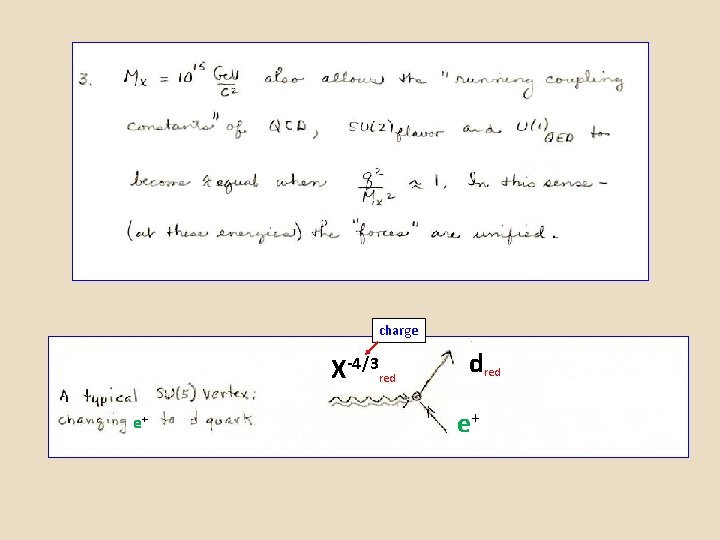 3. Mx = 10^15 GeV/C² also allows the "running coupling
constants" of QCD, SU(2)flavor and U(1)QED to
become ≈ equal when q²/Mx² ≈ 1. In this sense –
(at these energies) the "forces" are unified.
charge
X-4/3 red
dred
A typical SU(5) vertex:
changing e+ to d quark.
e+